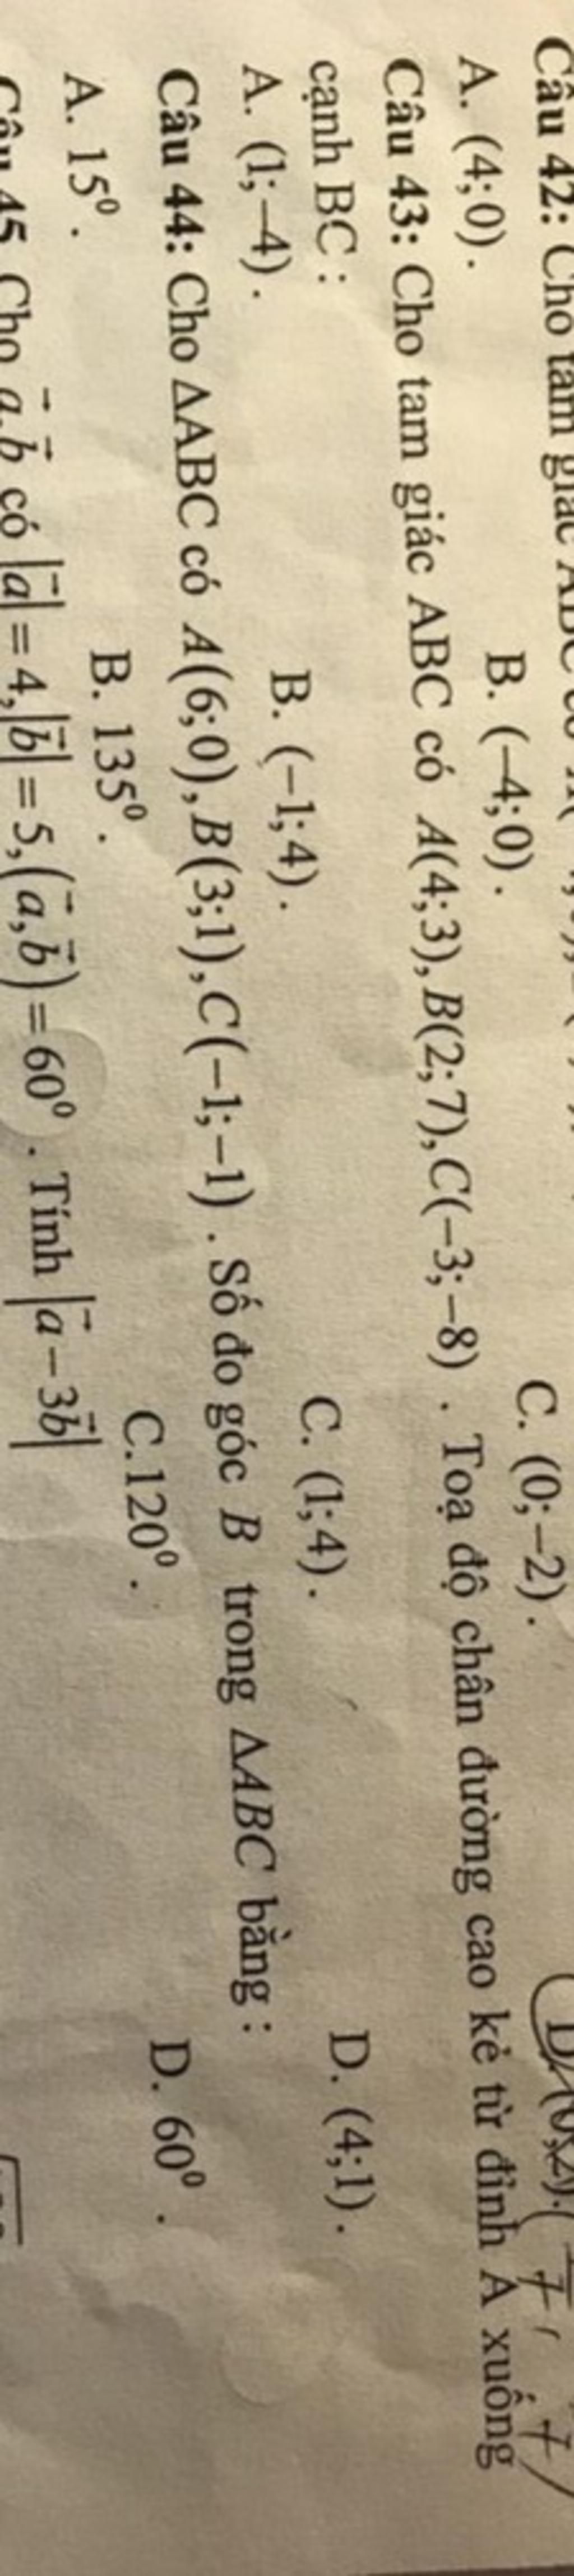 Câu 42: Cho tam giác ABC có
A. (4;0). B. (−4;0). C. (0;−2). D. (0;2).
Câu 43: Cho tam giác ABC có A(4;3), B(2;7), C(−3;−8) . Toạ độ chân đường cao kẻ từ đỉnh A xuống
cạnh BC :
A. (1;−4). B. (−1;4). C. (1;4). D. (4;1).
Câu 44: Cho ΔABC có A(6;0), B(3;1), C(−1;−1) . Số đo góc B trong ΔABC bằng :
A. 15⁰. B. 135⁰. C.120⁰. D. 60⁰ .
Câu 45 Cho a⃗,b⃗ có |a⃗|=4,|b⃗|=5,(a⃗,b⃗)=60⁰ . Tính |a⃗−3b⃗|